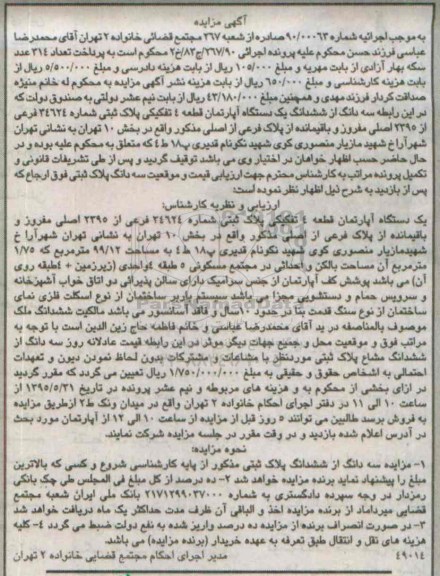 آگهی مزایده
به موجب اجرائیه شماره ۹۰/۰۰۰۶۳ صادره از شعبه ۲۶۷ مجتمع قضائی خانواده ۲ تهران آقای محمدرضا
عباسی فرزند حسن محکوم علیه پرونده اجرائی ۲۶۷/۹۰/ج۸۳/خ۲ محکوم است به پرداخت تعداد ۳۱۴ عدد
سکه بهار آزادی از بابت مهریه و مبلغ ۱۰۵/۰۰۰ ریال از بابت هزینه دادرسی و مبلغ ۵/۵۰۰/۰۰۰ ریال از
بابت هزینه کارشناسی و مبلغ ۶۵۰/۰۰۰ ریال از بابت هزینه نشر آگهی مزایده به محکوم له خانم منیژه
صداقت کردار فرزند مهدی و همچنین مبلغ ۴۳/۱۸۰/۰۰۰ ریال از بابت نیم عشر دولتی به صندوق دولت که
در این رابطه سه دانگ از ششدانگ یک دستگاه آپارتمان قطعه ۴ تفکیکی پلاک ثبتی شماره ۳۴۶۲۴ فرعی
از ۲۳۹۵ اصلی مفروز و باقیمانده از پلاک فرعی از اصلی مذکور واقع در بخش ۱۰ تهران به نشانی تهران
شهرآرا خ شهید مازیار منصوری کوی شهید نکونام قدیری پ۱۸ ط ۴ که متعلق به محکوم علیه بوده و در
حال حاضر حسب اظهار خواهان در اختیار وی می باشد توقیف گردید و پس از طی تشریفات قانونی و
تکمیل پرونده مراتب به کارشناس محترم جهت ارزیابی قیمت و موقعیت سه دانگ پلاک ثبتی فوق ارجاع که
پس از بازدید به شرح ذیل اظهار نظر نموده است:
ارزیابی و نظریه کارشناس:
یک دستگاه آپارتمان قطعه ۴ تفکیکی پلاک ثبتی شماره ۳۴۶۲۴ فرعی از ۲۳۹۵ اصلی مفروز و
باقیمانده از پلاک فرعی از اصلی مذکور واقع در بخش ۱۰ تهران به نشانی تهران شهرآرا خ
شهیدمازیار منصوری کوی شهید نکونام قدیری پ۱۸ ط۴ به مساحت ۹۹/۱۲ مترمربع که ۱/۷۵
مترمربع آن مساحت بالکن و احداثی در مجتمع مسکونی ۵ طبقه ۴واحدی (زیرزمین + ۴طبقه روی
آن) می باشد پوشش کف آپارتمان از جنس سرامیک دارای سالن پذیرائی دو اتاق خواب آشپزخانه
و سرویس حمام و دستشویی مجزا می باشد سیستم باربر ساختمان از نوع اسکلت فلزی نمای
ساختمان از نوع سنگ قدمت بنا در حدود ۱۰سال و فاقد آسانسور می باشد مالکیت ششدانگ ملک
موصوف بالمناصفه در ید آقای محمدرضا عباسی و خانم فاطمه حاج زین الدین است با توجه به
مراتب فوق و موقعیت محل و جمیع جهات دیگر موثر در این رابطه قیمت عادلانه روز سه دانگ از
ششدانگ مشاع پلاک ثبتی موردنظر با مشاعات و مشترکات بدون لحاظ نمودن دیون و تعهدات
احتمالی به اشخاص حقوق و حقیقی به مبلغ ۱/۷۵۰/۰۰۰/۰۰۰ ریال تعیین می گردد که مقرر گردید
در ازای بخشی از محکوم به و هزینه های مربوطه و نیم عشر پرونده در تاریخ ۱۳۹۵/۵/۳۱ از
ساعت ۱۰ الی ۱۱ در دفتر اجرای احکام خانواده ۲ تهران واقع در میدان ونک ط۲ ازطریق مزایده
به فروش برسد طالبین می توانند ۵ روز قبل از مزایده از ساعت ۱۰ الی ۱۲ از آپارتمان مورد بحث
در آدرس اعلام شده بازدید و در وقت مقرر در جلسه مزایده شرکت نمایند.
نحوه مزایده:
۱- مزایده سه دانگ از ششدانگ پلاک ثبتی مذکور از پایه کارشناسی شروع و کسی که بالاترین
مبلغ را پیشنهاد نماید برنده مزایده خواهد شد ۲- ده درصد از کل مبلغ فی المجلس طی چک بانکی
رمزدار در وجه سپرده دادگستری به شماره ۲۱۷۱۲۹۹۰۳۷۰۰۰ بانک ملی ایران شعبه مجتمع
قضایی میرداماد از برنده مزایده اخذ و الباقی آن ظرف مدت حداکثر یک ماه دریافت خواهد شد
۳- در صورت انصراف برنده از مزایده ده درصد واریز شده به نفع دولت ضبط می گردد ۴- کلیه
هزینه های نقل و انتقال طبق تعرفه به عهده خریدار (برنده مزایده) می باشد.
۴۹۰۱۴ مدیر اجرای احکام مجتمع قضایی خانواده ۲ تهران